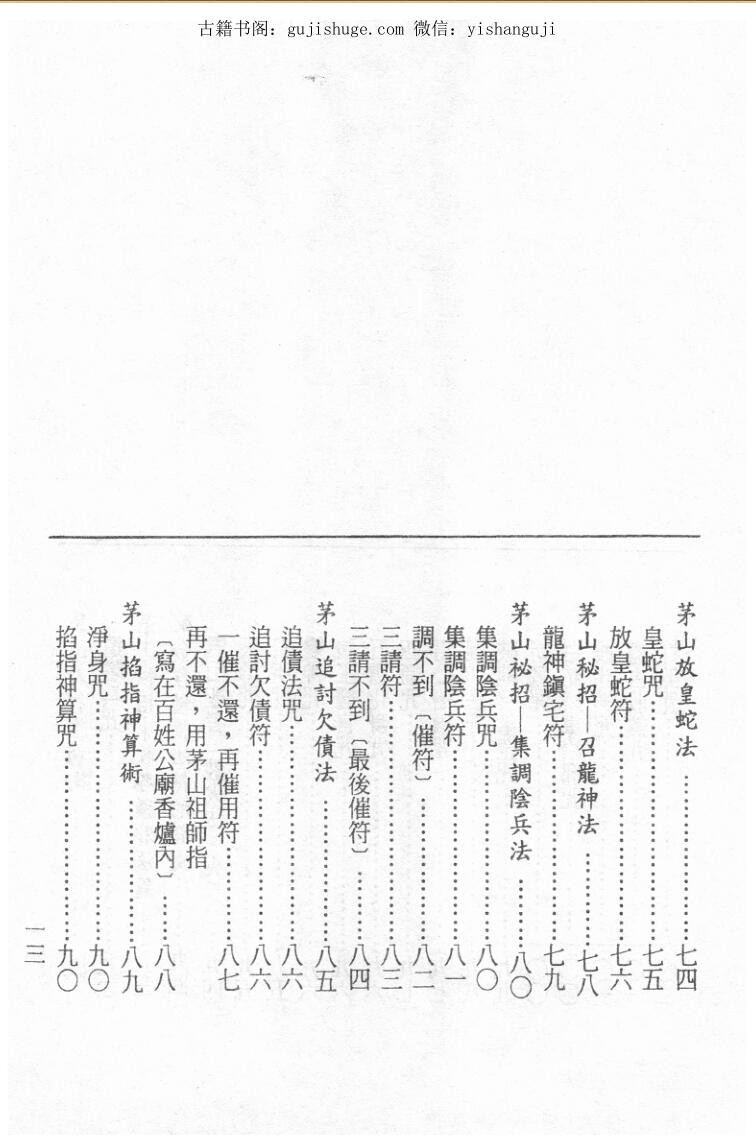 古籍书阁：gujishuge.com 微信：yishanguji
茅山放皇蛇法…………………七四
皇蛇咒…………………………七五
放皇蛇符………………………七六
茅山秘招—召龍神法…………七八
龍神鎮宅符……………………七九
茅山祕招—集調陰兵法………八〇
集調陰兵咒……………………八〇
集調陰兵符……………………八一
調不到〔催符〕………………八二
三請符…………………………八三
三請不到〔最後催符〕………八四
茅山追討欠債法………………八五
追債法咒………………………八六
追討欠債符……………………八六
一催不還，再催用符…………八七
再不還，用茅山祖師指
〔寫在百姓公廟香爐內〕……八八
茅山掐指神算術………………八九
淨身咒…………………………九〇
掐指神算咒……………………九〇
一三